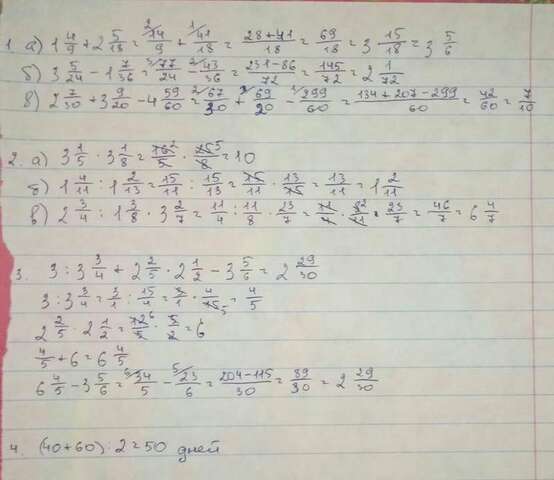 1. а) 1 4/9 + 2 5/18 = 14/9 + 41/18 = 28+41/18 = 69/18 = 3 15/18 = 3 5/6
б) 3 5/24 - 1 7/36 = 77/24 - 43/36 = 231-86/72 = 145/72 = 2 1/72
в) 2 7/30 + 3 9/20 - 4 59/60 = 67/30 + 69/20 - 299/60 = 134+207-299/60 = 42/60 = 7/10
2. а) 3 1/5 · 3 1/8 = 16/5 · 25/8 = 10
б) 1 4/11 : 1 2/13 = 15/11 : 15/13 = 15/11 · 13/15 = 13/11 = 1 2/11
в) 2 3/4 : 1 3/8 · 3 2/7 = 11/4 : 11/8 · 23/7 = 11/4 · 8/11 · 23/7 = 46/7 = 6 4/7
3. 3 : 3 3/4 + 2 2/5 · 2 1/2 - 3 5/6 = 2 29/30
3 : 3 3/4 = 3/1 : 15/4 = 3/1 · 4/15 = 4/5
2 2/5 · 2 1/2 = 12/5 · 5/2 = 6
4/5 + 6 = 6 4/5
6 4/5 - 3 5/6 = 34/5 - 23/6 = 204-115/30 = 89/30 = 2 29/30
4. (40+60) : 2 = 50 дней